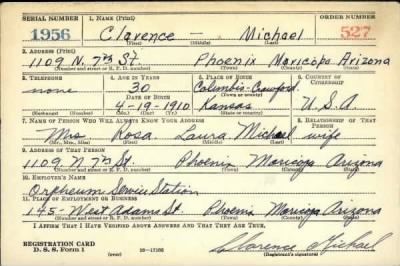 SERIAL NUMBER 1. NAME (Print) ORDER NUMBER
1956 Clarence — Michael 527
(First) (Middle) (Last)
2. ADDRESS (Print)
1109 N. 7th St. Phoenix Maricopa Arizona
(Number and street or R. F. D. number) (Town) (County) (State)
3. TELEPHONE 4. AGE IN YEARS 5. PLACE OF BIRTH 6. COUNTRY OF CITIZENSHIP
none 30 Columbus-Crawford
DATE OF BIRTH (Town or county)
4-19-1910 Kansas U.S.A.
(Exchange) (Number) (Mo.) (Day) (Yr.) (State or country)
7. NAME OF PERSON WHO WILL ALWAYS KNOW YOUR ADDRESS 8. RELATIONSHIP OF THAT PERSON
Mrs Rosa Laura Michael wife
(Mr., Mrs., Miss) (First) (Middle) (Last)
9. ADDRESS OF THAT PERSON
1109 N 7th St. Phoenix Maricopa Arizona
(Number and street or R. F. D. number) (Town) (County) (State)
10. EMPLOYER'S NAME
Orpheum Service Station
11. PLACE OF EMPLOYMENT OR BUSINESS
145- West Adams St. Phoenix Maricopa Arizona
(Number and street or R. F. D. number) (Town) (County) (State)
I AFFIRM THAT I HAVE VERIFIED ABOVE ANSWERS AND THAT THEY ARE TRUE.
REGISTRATION CARD
D. S. S. Form 1 (over) 16-17105 Clarence Michael
(Registrant's signature)